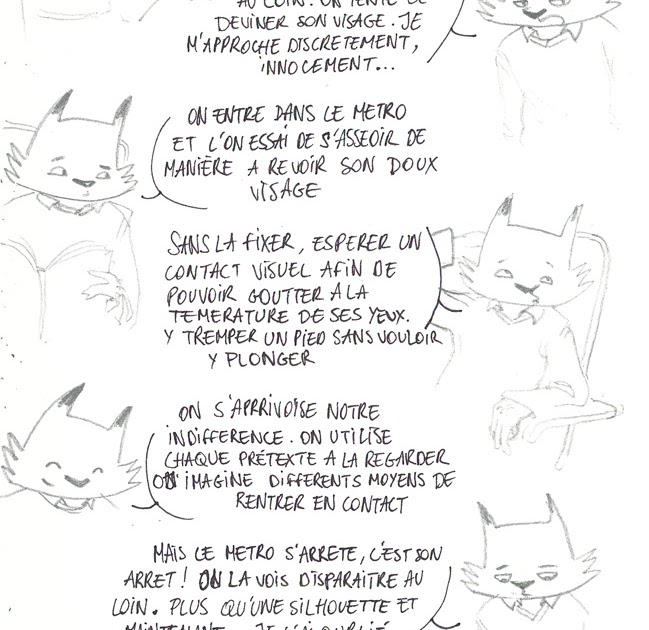 AU LOIN. ON TENTE DE
DEVINER SON VISAGE. JE
M'APPROCHE DISCRETEMENT,
INNOCEMENT...
ON ENTRE DANS LE METRO
ET L'ON ESSAI DE S'ASSEOIR DE
MANIÈRE A REVOIR SON DOUX
VISAGE
SANS LA FIXER, ESPERER UN
CONTACT VISUEL AFIN DE
POUVOIR GOUTTER A LA
TEMERATURE DE SES YEUX.
Y TREMPER UN PIED SANS VOULOIR
Y PLONGER
ON S'APRRIVOISE NOTRE
INDIFFERENCE. ON UTILISE
CHAQUE PRÉTEXTE A LA REGARDER
ON IMAGINE DIFFERENTS MOYENS DE
RENTRER EN CONTACT
MAIS LE METRO S'ARRETE, C'EST SON
ARRET! ON LA VOIS DISPARAITRE AU
LOIN. PLUS QU'UNE SILHOUETTE ET
MAINTENANT JE L'AI OUBLIÉ